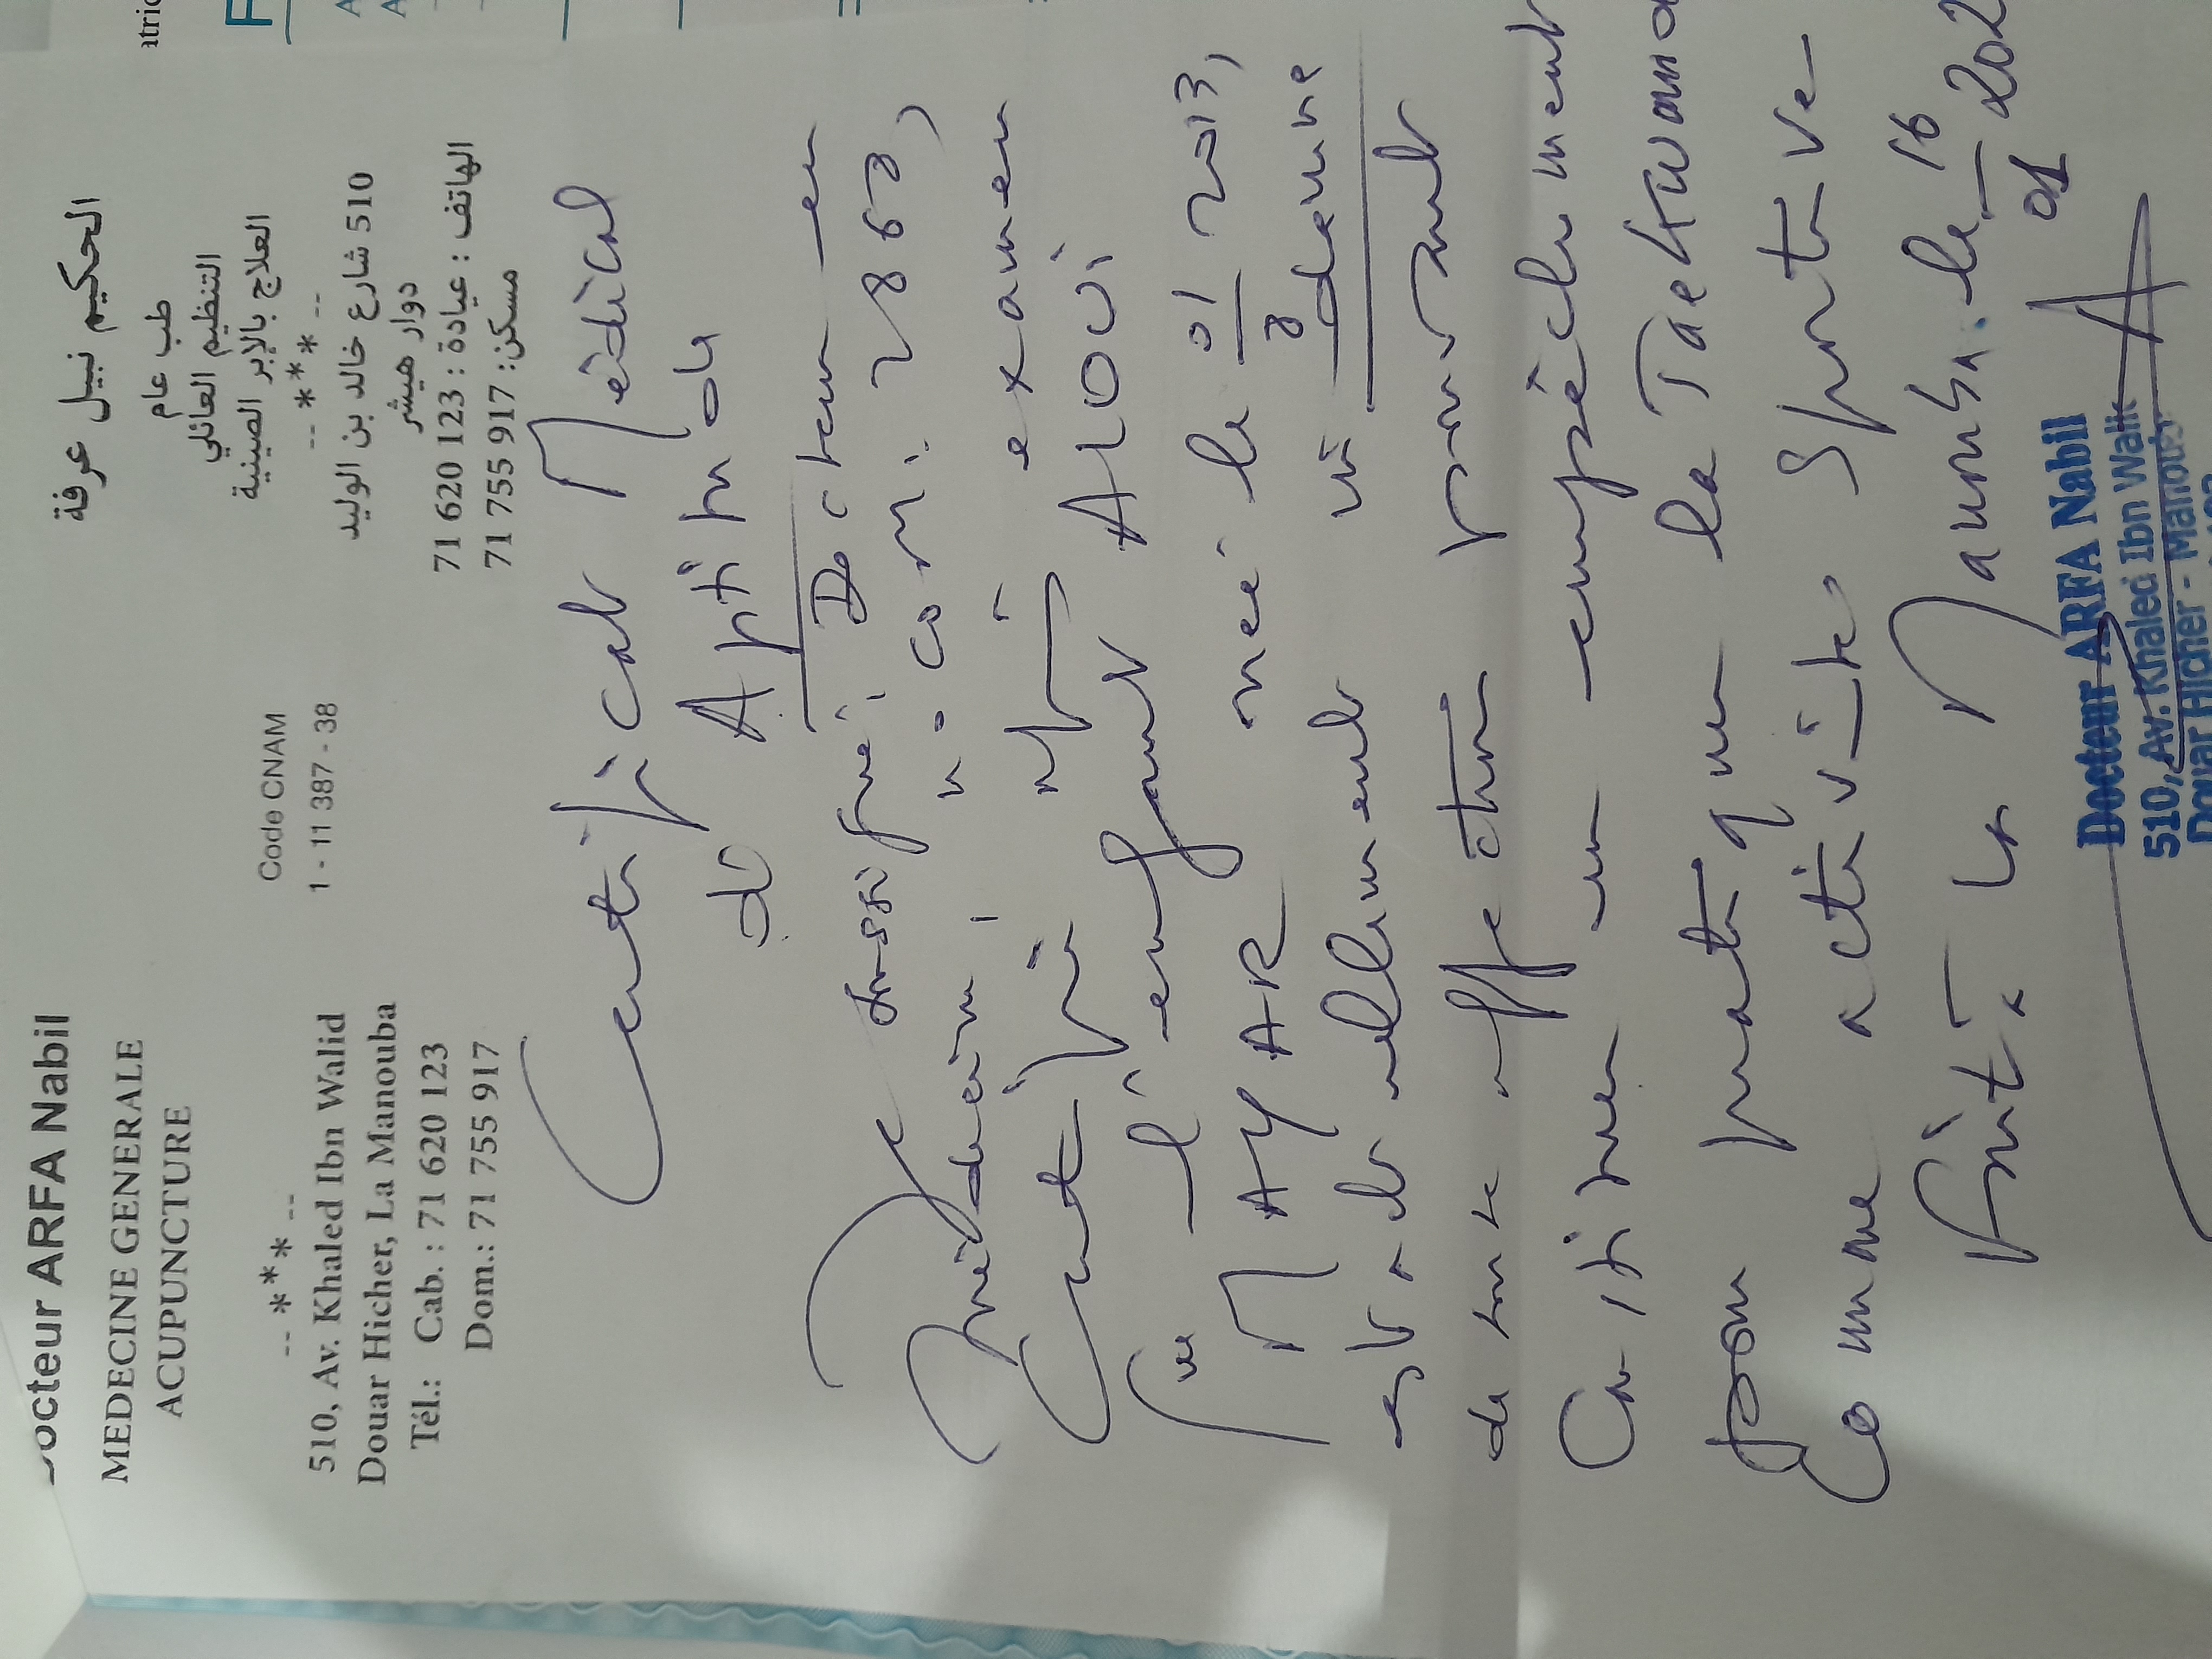 Docteur ARFA Nabil
MEDECINE GENERALE
ACUPUNCTURE
-- *** --
510, Av. Khaled Ibn Walid
Douar Hicher, La Manouba
Tél.: Cab. : 71 620 123
Dom.: 71 755 917
Code CNAM
1 - 11 387 - 38
الحكيم نبيل عرفة
طب عام
التنظيم العائلي
العلاج بالإبر الصينية
-- *** --
510 شارع خالد بن الوليد
دوار هيشر
الهاتف : عيادة : 123 620 71
مسكن: 917 755 71
Certificat Médical
d'Aptitude
Je soussigné, Docteur en
médecine, n° com:
Certifie examen
que l'enfant ALOUI
MAYAR née le 01 2013,
est actuellement indemne
de toute affection pouvant
Constituer un empêchement
pour pratiquer le Taekwondo
Comme activité Sportive
Fait à la Manouba. le 16
01 202
Docteur ARFA Nabil
510, Av. Khaled Ibn Walid
Douar Hicher - Manouba